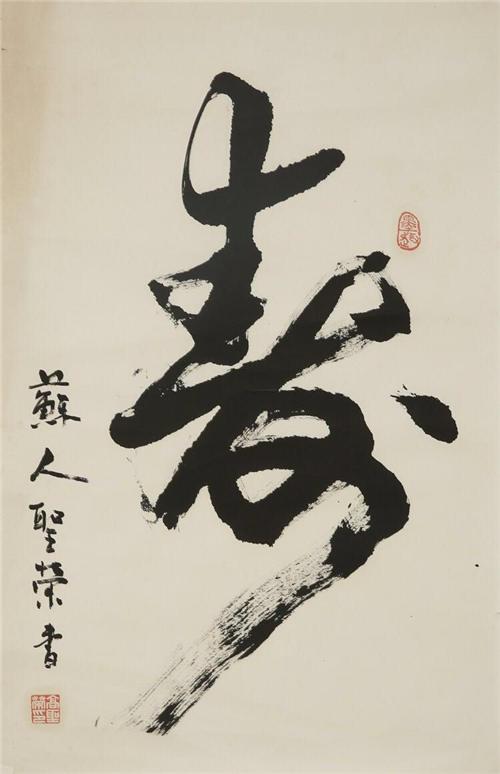 壽
蘇人聖榮書